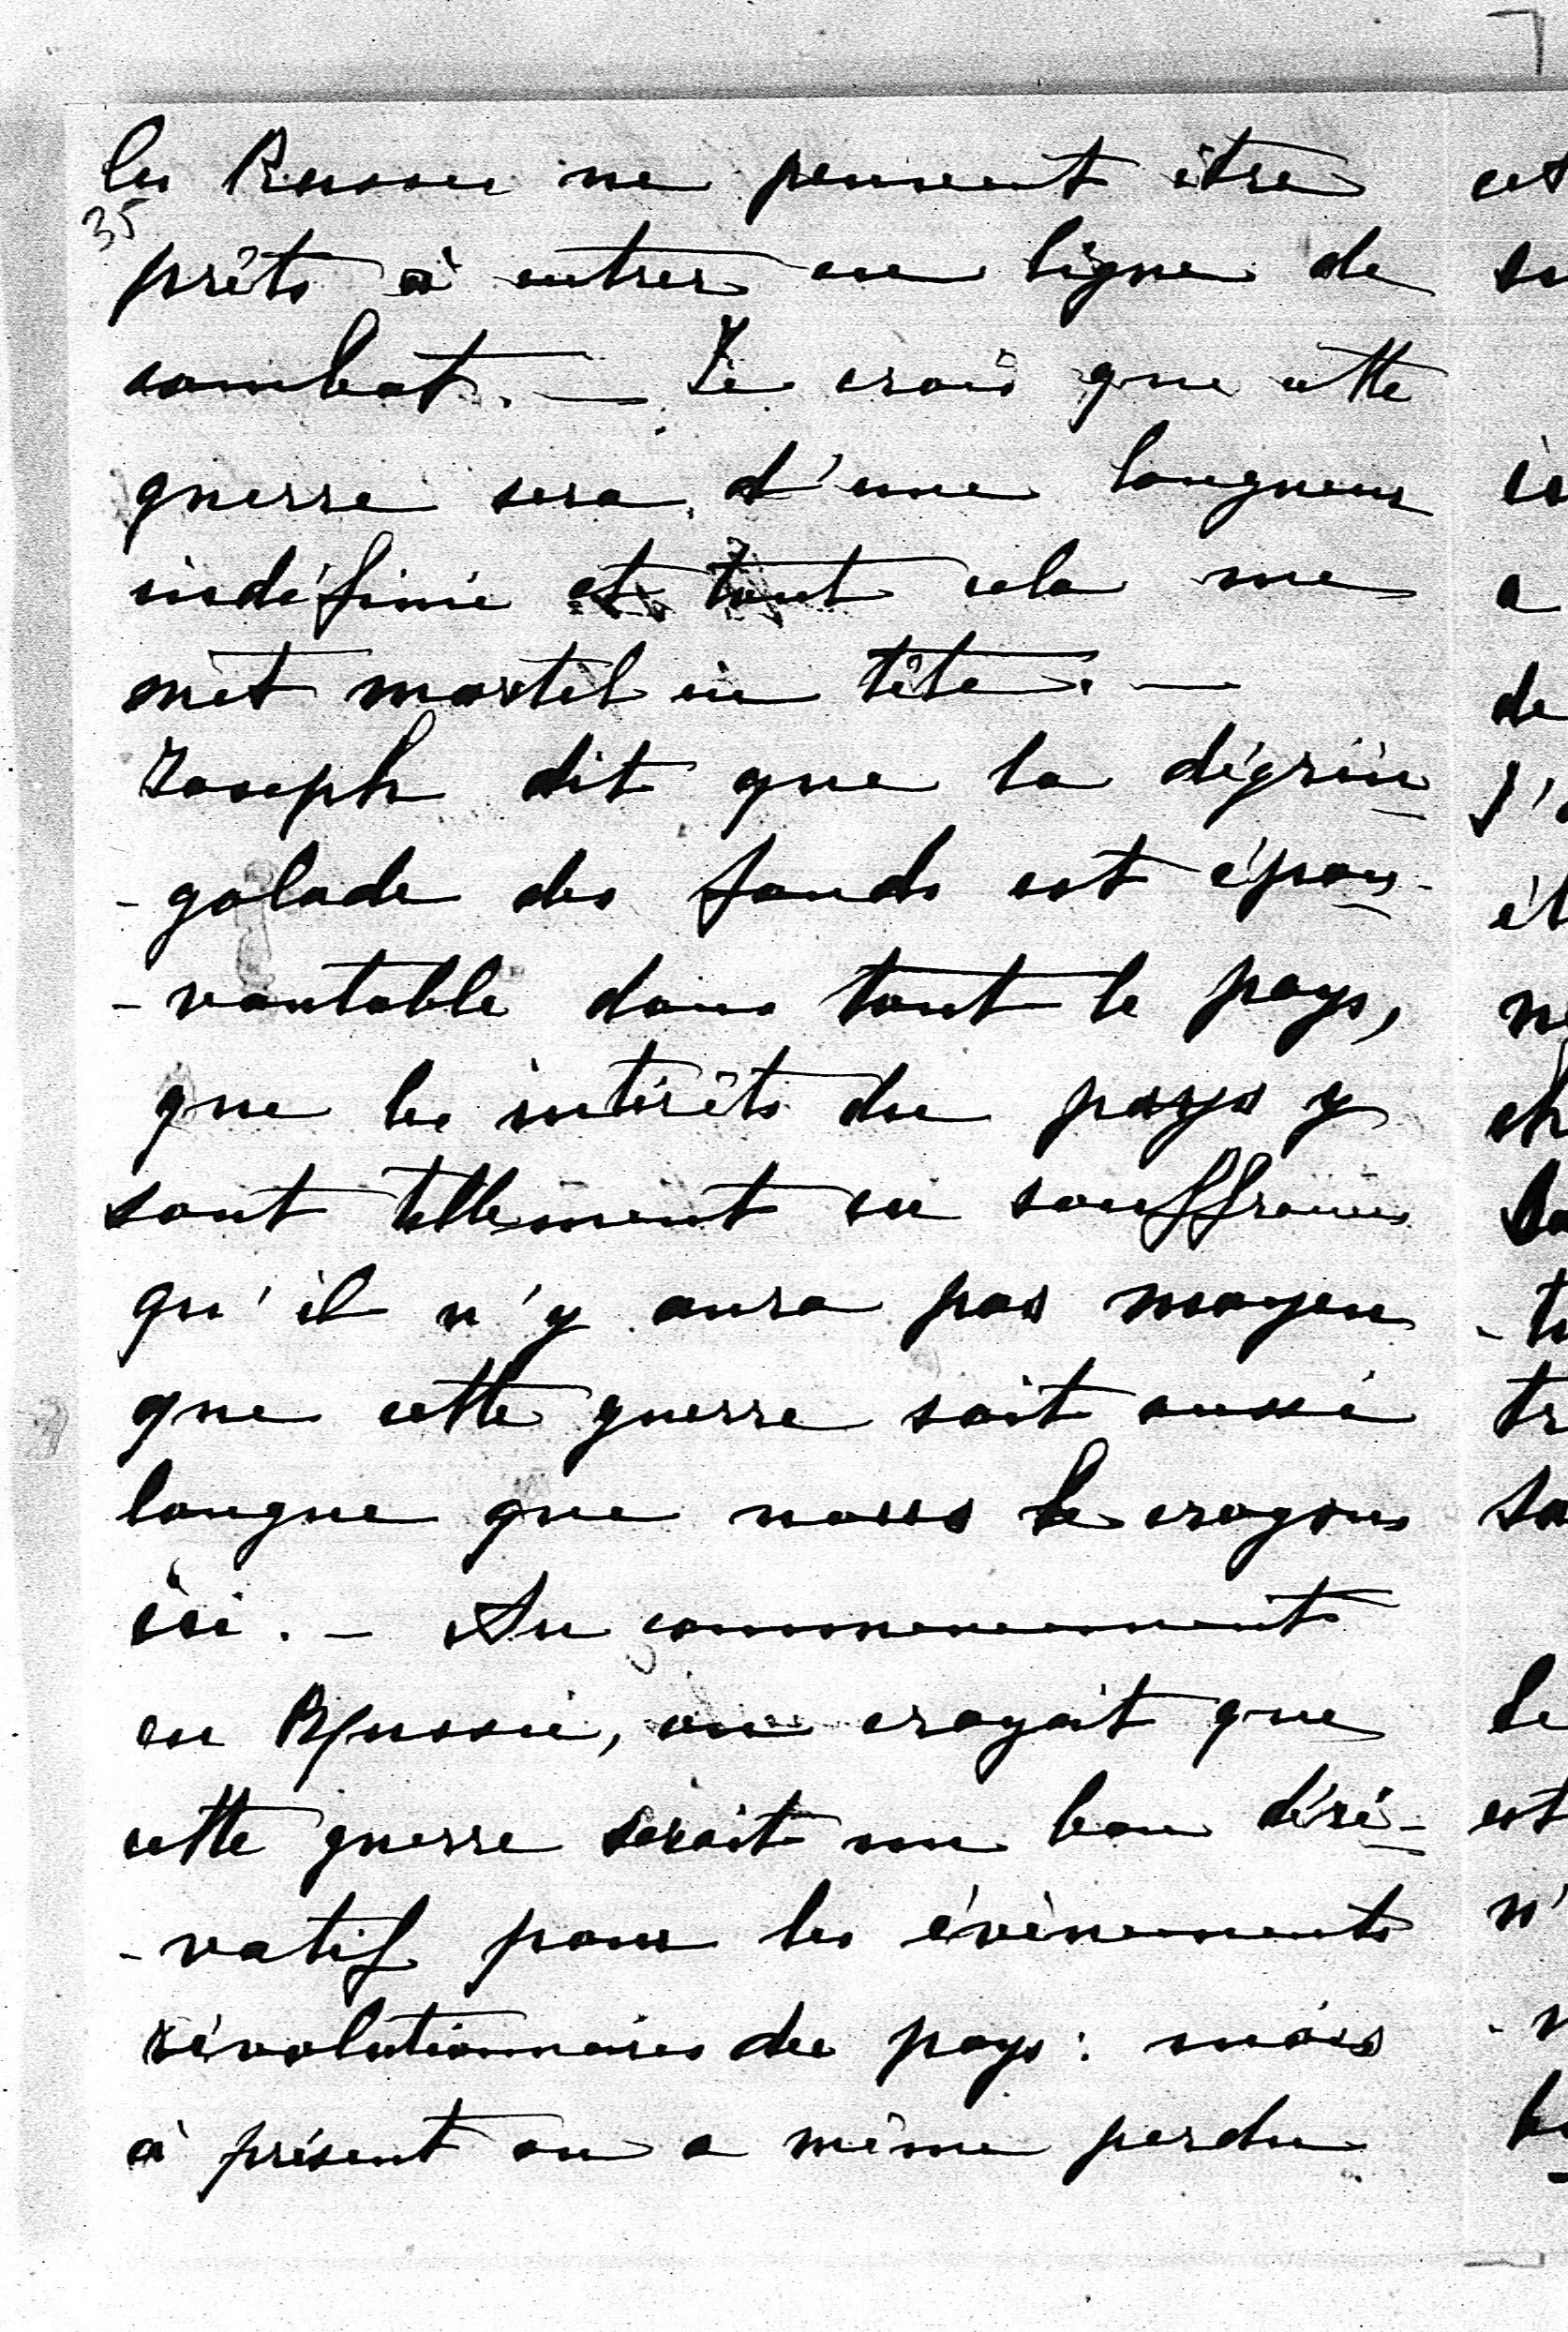 les Russes ne peuvent être
35
prêts à entrer en ligne de
combat. — Je crois que cette
guerre sera d'une longueur
indéfinie et tout cela me
met martel en tête. —
Joseph dit que la dégrin
- golade des fonds est épou-
- vantable dans tout le pays,
que les intérêts du pays y
sont tellement en souffrances
qu'il n'y aura pas moyen
que cette guerre soit aussi
longue que nous le croyons
ici. — Au commencement
en Russie, on croyait que
cette guerre serait un bon déri-
- vatif pour les évènements
révolutionnaires du pays : mais
à présent on a même perdu